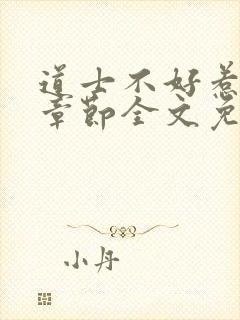 道士不好惹
章节全文免
小丹